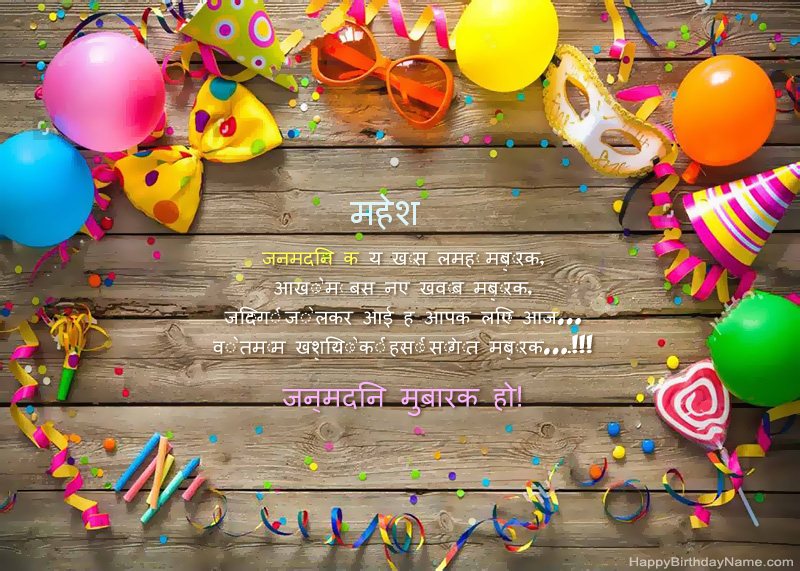 महेश
जनमदिन क य ख़ास लमहा मुबारक,
आंखों में बसे नए ख्वाब मुबारक,
जिंदगी जो लेकर आई है आपके लिए आज...
वो तमाम खुशियों की हंसी सौगात मुबारक...!!!
जन्मदिन मुबारक हो!
HappyBirthdayName.com